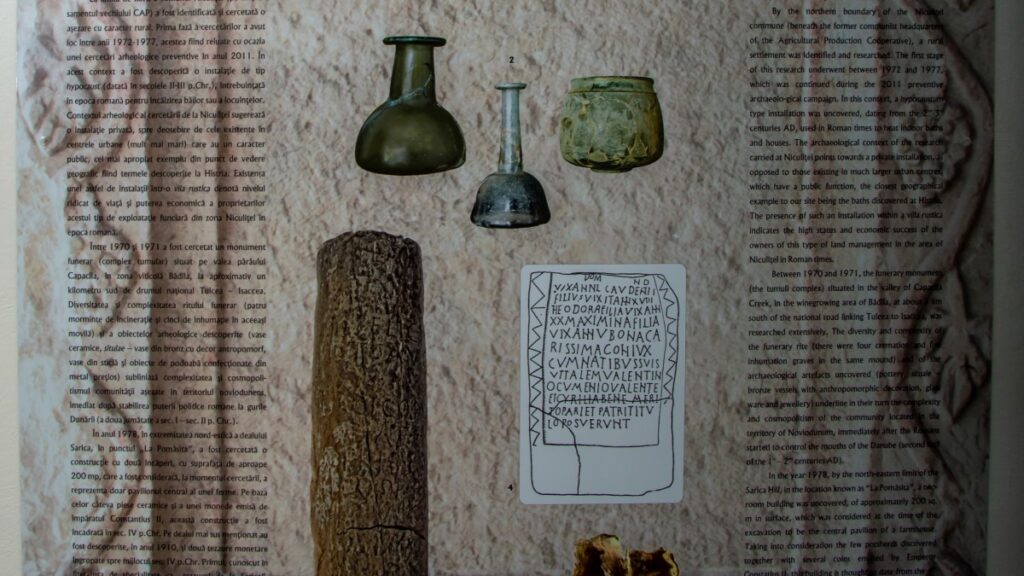 samentul vechiului CAP) a fost identificată și cercetată o
așezare cu caracter rural. Prima fază a cercetărilor a avut
loc între anii 1972-1977, acestea fiind reluate cu ocazia
unei cercetări arheologice preventive în anul 2011. În
acest context a fost descoperită o instalație de tip
hypocaust (datată în secolele II-III p.Chr.), întrebuințată
în epoca romană pentru încălzirea băilor sau a locuințelor.
Contextul arheologic al cercetării de la Niculițel sugerează
o instalație privată, spre deosebire de cele existente în
centrele urbane (mult mai mari) care au un caracter
public, cel mai apropiat exemplu din punct de vedere
geografic fiind termele descoperite la Histria. Existența
unei astfel de instalații într-o villa rustica denotă nivelul
ridicat de viață și puterea economică a proprietarilor
acestui tip de exploatație funciară din zona Niculițel în
epoca romană.
Între 1970 și 1971 a fost cercetat un monument
funerar (complex tumular) situat pe valea pârâului
Capaclia, în zona viticolă Bădila, la aproximativ un
kilometru sud de drumul național Tulcea – Isaccea.
Diversitatea și complexitatea ritului funerar (patru
morminte de incinerație și cinci de inhumație în aceeași
movilă) și a obiectelor arheologice descoperite (vase
ceramice, situlae – vase din bronz cu decor antropomorf,
vase din sticlă și obiecte de podoabă confecționate din
metal prețios) subliniază complexitatea și cosmopoli-
tismul comunității așezate în teritoriul noviodunens,
imediat după stabilirea puterii politice romane la gurile
Dunării (a doua jumătate a sec. I – sec. II p. Chr.).
În anul 1978, în extremitatea nord-estică a dealului
Sarica, în punctul „La Pomăsita”, a fost cercetată o
construcție cu două încăperi, cu suprafața de aproape
200 mp, care a fost considerată, la momentul cercetării, a
reprezenta doar pavilionul central al unei ferme. Pe baza
celor câteva piese ceramice și a unei monede emisă de
împăratul Constantius II, această construcție a fost
încadrată în sec. IV p.Chr. Pe dealul mai sus menționat au
fost descoperite, în anul 1910, și două tezaure monetare
îngropate spre mijlocul sec. IV p.Chr. Primul, cunoscut în
2
DOM
VIXANNL CAVDENTI
FILIVSVIXITANXVIII
THEODORAFILIAVIXAN
XXMAXIMINAFILIA
VIXANNVBONACA
RISSIMACONIVX
CVMNATIBVSSVIS
VITALEMVALENTIN
OCVMENIOVALENTE
ETCYRILLABENEMERI
TOPARIETPATRITITV
LOPOSVERVNT
4
By the northern boundary of the Niculițel
commune (beneath the former communist headquarters
of the Agricultural Production Cooperative), a rural
settlement was identified and researched. The first stage
of this research underwent between 1972 and 1977,
which was continued during the 2011 preventive
archaeolo-gical campaign. In this context, a hypocaustum
type installation was uncovered, dating from the 2nd-3rd
centuries AD, used in Roman times to heat indoor baths
and houses. The archaeological context of the research
carried at Niculițel points towards a private installation, as
opposed to those existing in much larger urban centres,
which have a public function, the closest geographical
example to our site being the baths discovered at Histria.
The presence of such an installation within a villa rustica
indicates the high status and economic success of the
owners of this type of land management in the area of
Niculițel in Roman times.
Between 1970 and 1971, the funerary monument
(the tumuli complex) situated in the valley of Capaclia
Creek, in the winegrowing area of Bădila, at about 1 km
south of the national road linking Tulcea to Isaccea, was
researched extensively. The diversity and complexity of
the funerary rite (there were four cremation and five
inhumation graves in the same mound) and of the
archaeological artefacts uncovered (pottery, situlae –
bronze vessels with anthropomorphic decoration, glass
ware and jewellery) underline in their turn the complexity
and cosmopolitism of the community located in the
territory of Noviodunum, immediately after the Romans
started to control the mouths of the Danube (second half
of the 1st – 2nd centuries AD).
In the year 1978, by the north-eastern limit of the
Sarica Hill, in the location known as "La Pomăsita", a two-
room building was uncovered, of approximately 200 sq.
m in surface, which was considered at the time of the
excavation to be the central pavilion of a farmhouse.
Taking into consideration the few potsherds discovered
together with several coins emitted by Emperor
Constantius II, this building is thought to date from the